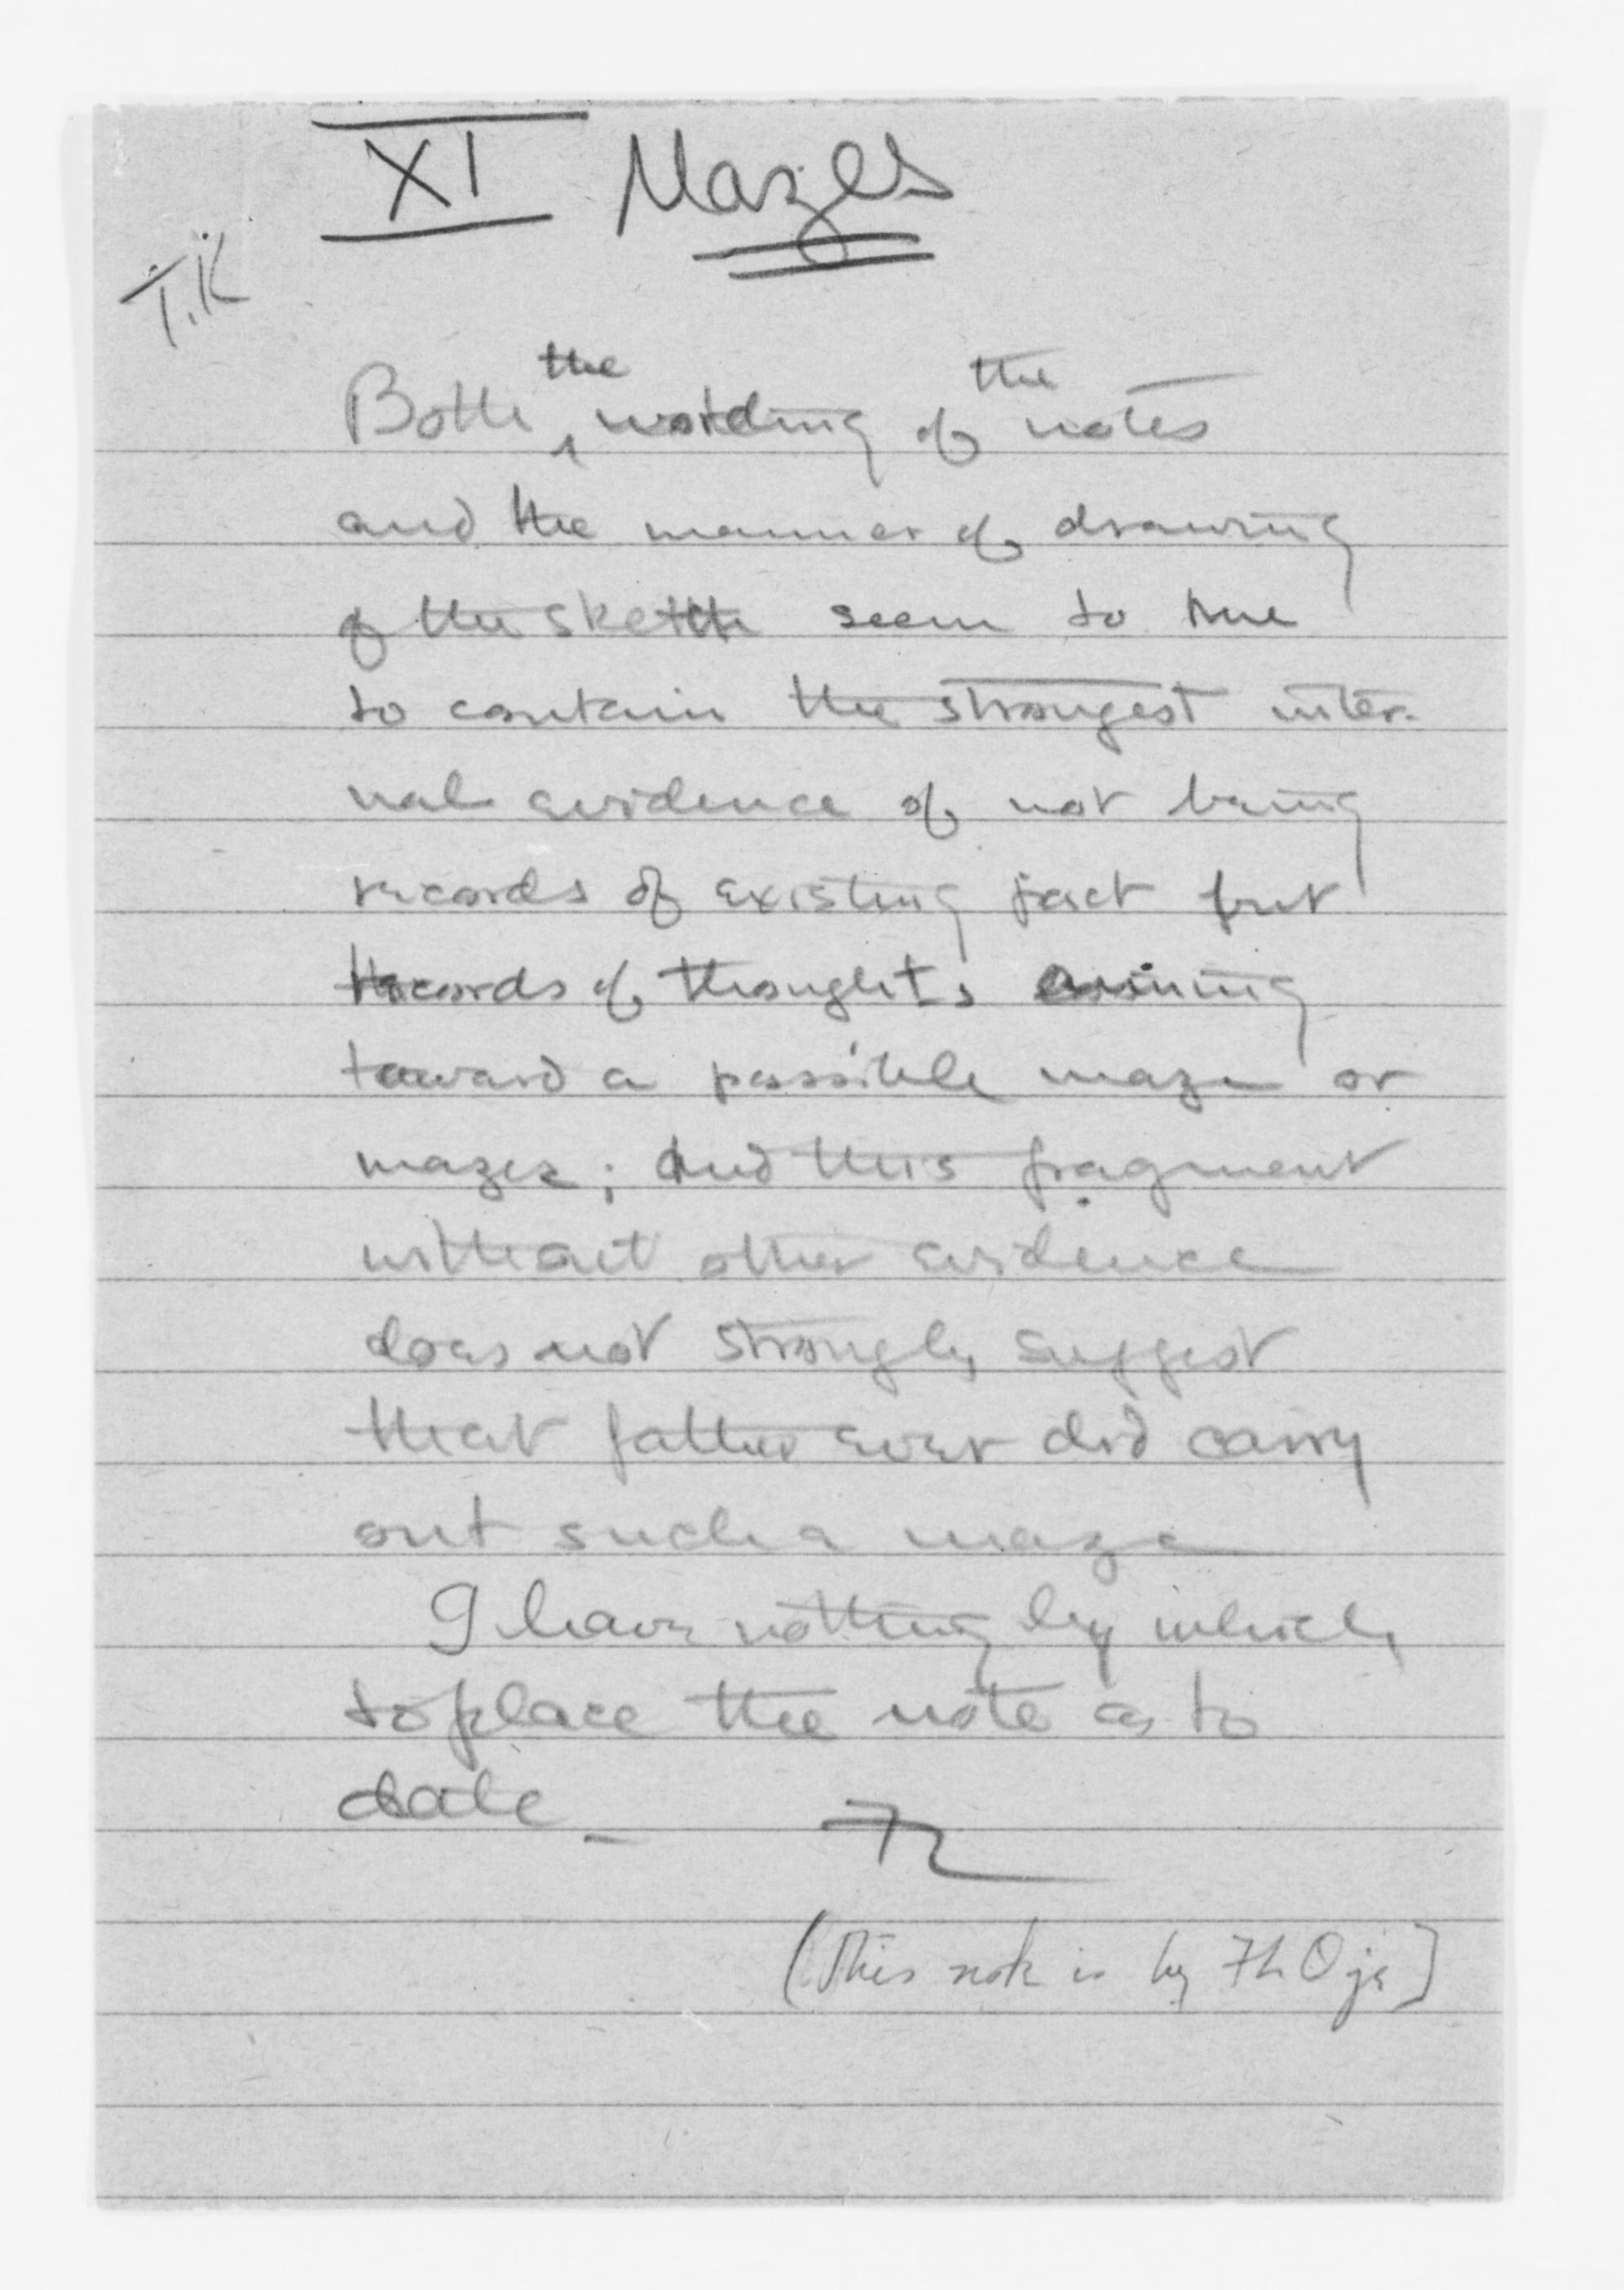 XI Mazes
T.K
Both the wording of the notes
and the manner of drawing
of the sketch seem to me
to contain the strongest inter-
nal evidence of not being
records of existing fact but
records of thoughts aiming
toward a possible maze or
mazes; and this fragment
without other evidence
does not strongly suggest
that father ever did carry
out such a maze
I have nothing by which
to place the note as to
date –
(This note is by FLO jr)